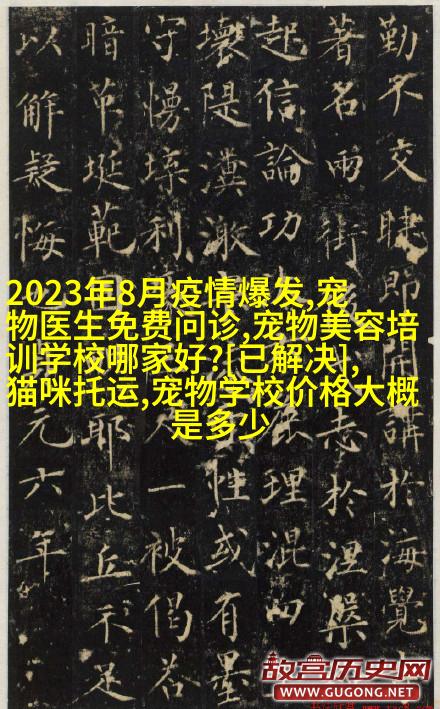 2023年8月疫情爆发,宠
物医生免费问诊,宠物美容培
训学校哪家好?[已解决],
猫咪托运,宠物学校价格大概
是多少
勤不交睫即開講於海覺
著名兩街志於涅槃
起信論功理混四
壞隄性或有墨
守慢利人一被偈若
暗埏範耶此丘示足
以解疑悔元六年
故宫历史网
WWW.GUGONG.NET